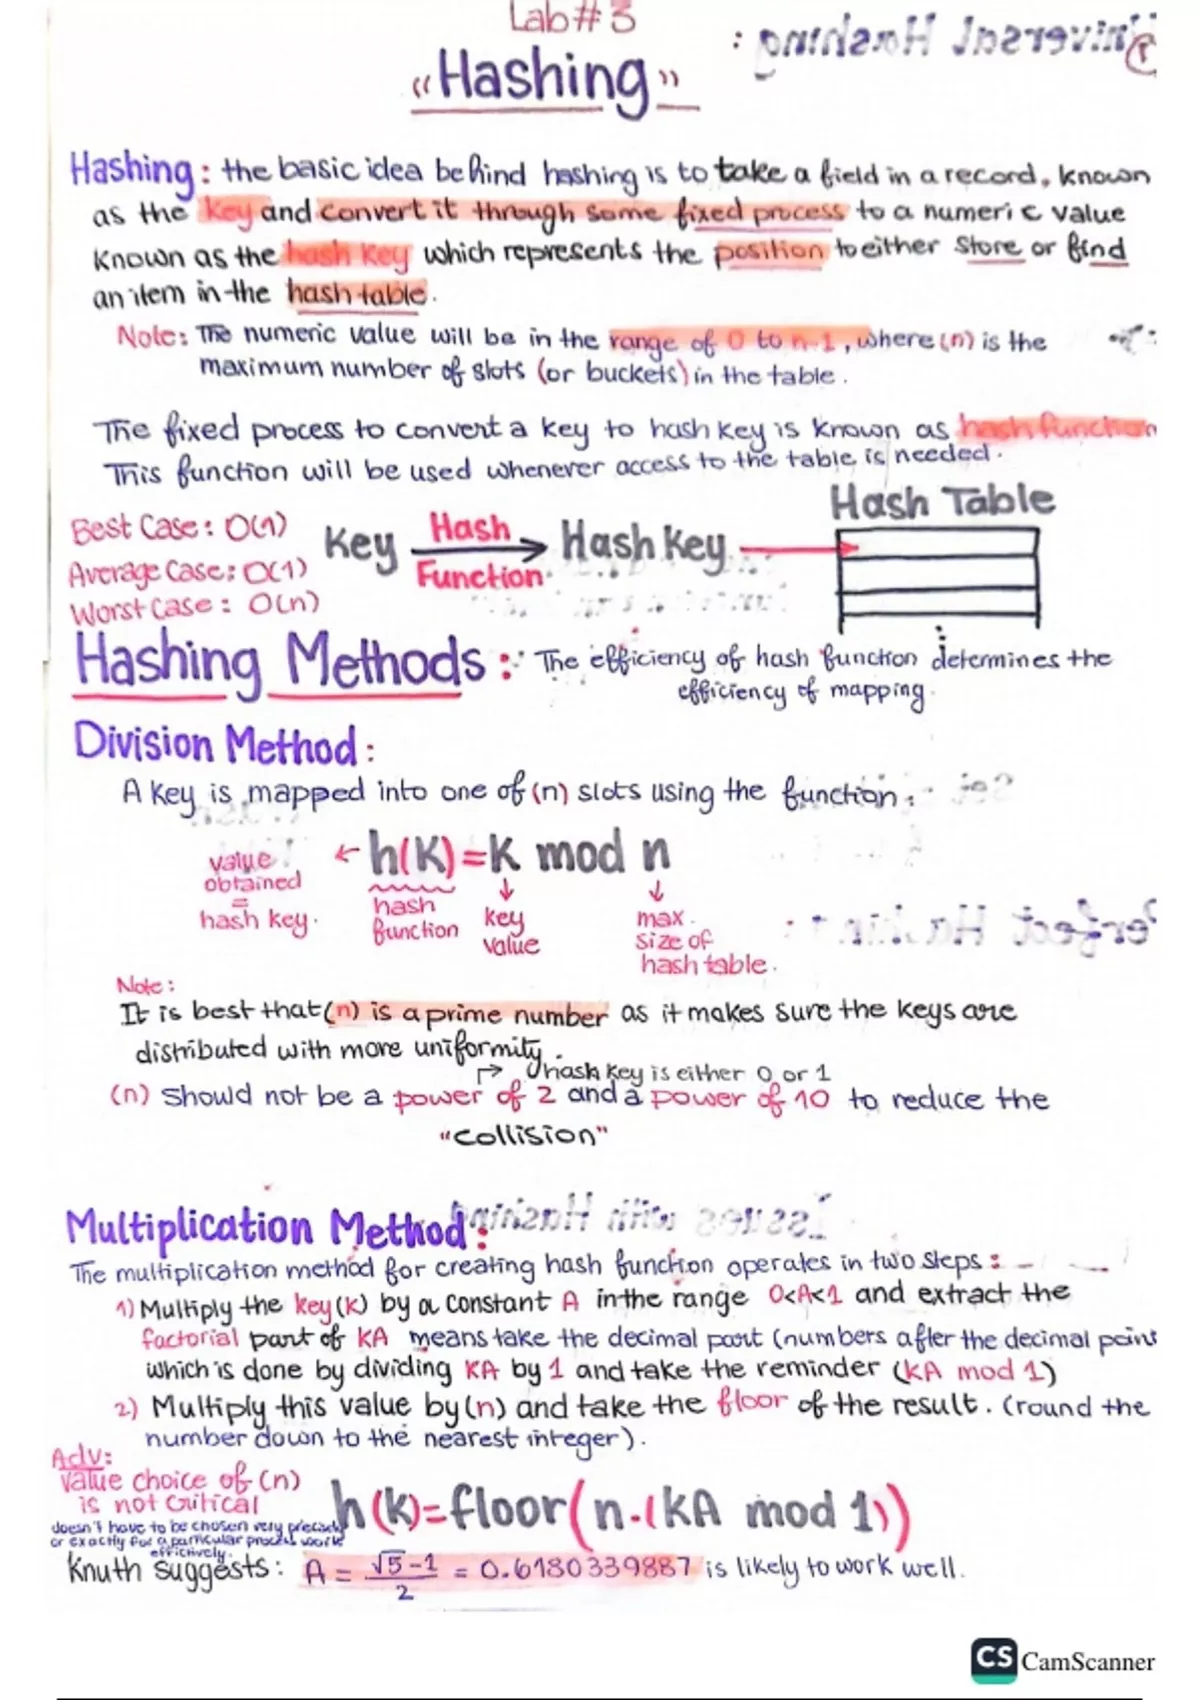 Lab#3
"Hashing"
Universal Hashing :
Hashing: the basic idea behind hashing is to take a field in a record, known
as the key and convert it through some fixed process to a numeric value
known as the hash key which represents the position to either store or find
an item in the hash table.
Note: The numeric value will be in the range of 0 to n-1, where (n) is the
maximum number of slots (or buckets) in the table.
The fixed process to convert a key to hash key is known as hash function
This function will be used whenever access to the table is needed.
Hash Table
Best Case: O(1)
Average Case: O(1)
Worst Case: O(n)
Key Hash Function Hash Key
Hashing Methods: The efficiency of hash function determines the
efficiency of mapping.
Division Method:
A key is mapped into one of (n) slots using the function:
h(K)=K mod n
value obtained = hash key.
hash function
key value
max. size of hash table.
Perfect Hashing :
Note:
It is best that (n) is a prime number as it makes sure the keys are
distributed with more uniformity.
hash key is either 0 or 1
(n) should not be a power of 2 and a power of 10 to reduce the
"collision"
Issues with Hashing
Multiplication Method:
The multiplication method for creating hash function operates in two steps:
1) Multiply the key (K) by a constant A in the range 0<A<1 and extract the
factorial part of KA means take the decimal part (numbers after the decimal point
which is done by dividing KA by 1 and take the reminder (KA mod 1)
2) Multiply this value by (n) and take the floor of the result. (round the
number down to the nearest integer).
Adv:
value choice of (n)
is not critical
doesn't have to be chosen very precisely
or exactly for a particular process work
effictively.
h(K)=floor(n.(KA mod 1))
Knuth suggests: A = √5-1/2 = 0.6180339887 is likely to work well.
CS CamScanner